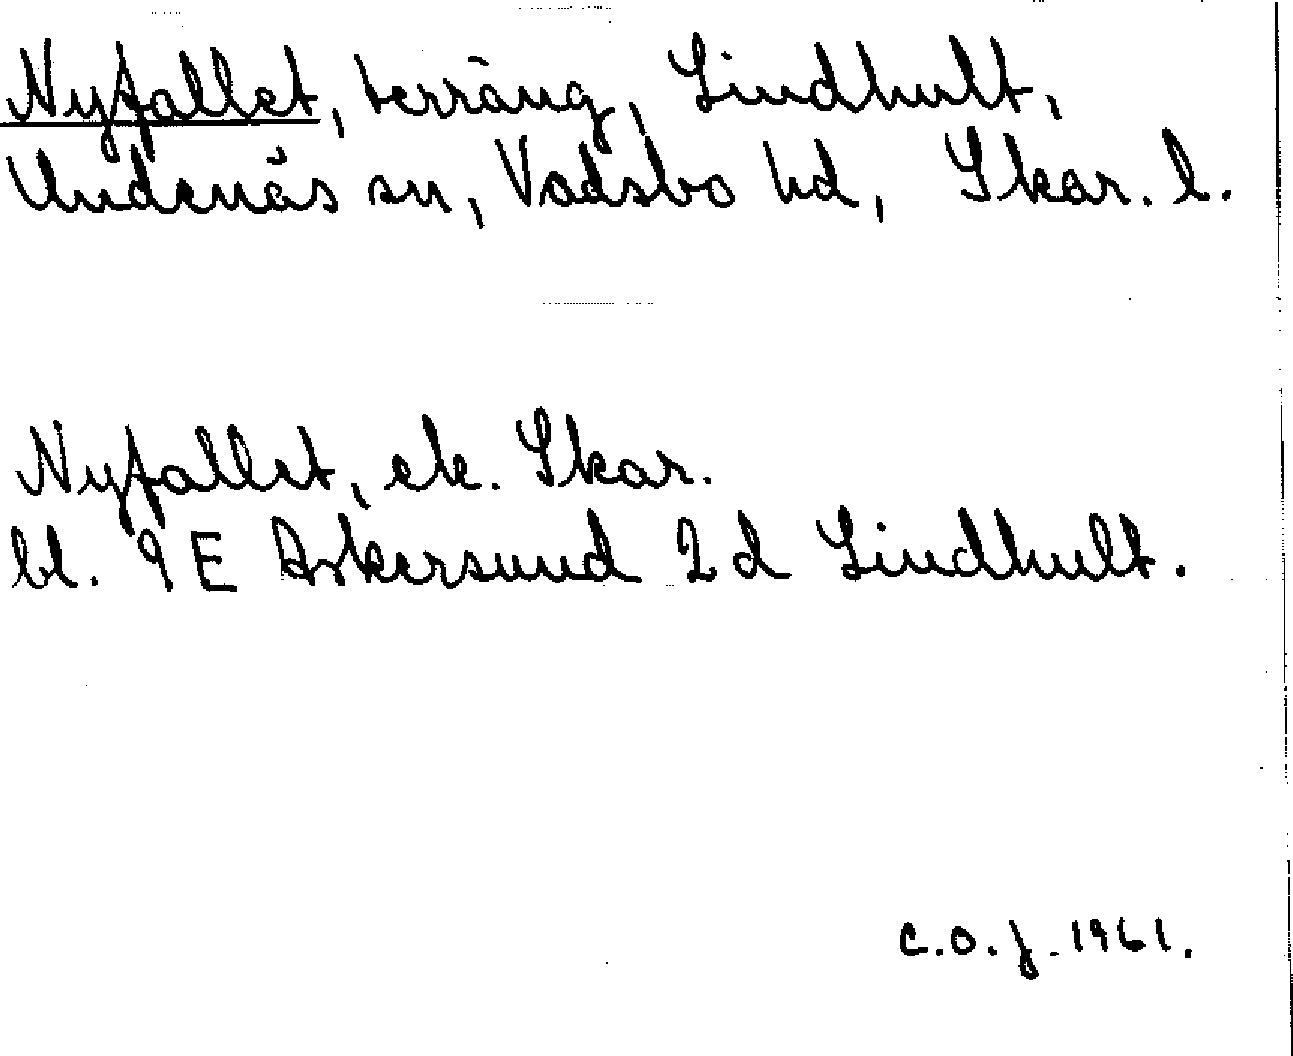 Nyfallet, terräng, Lindhult,
Undenäs sn, Vadsbo hd, Skar. l.
Nyfallet, ek. Skar.
bl. 9 E Askersund 2d Lindhult.
C.O.J. 1961.